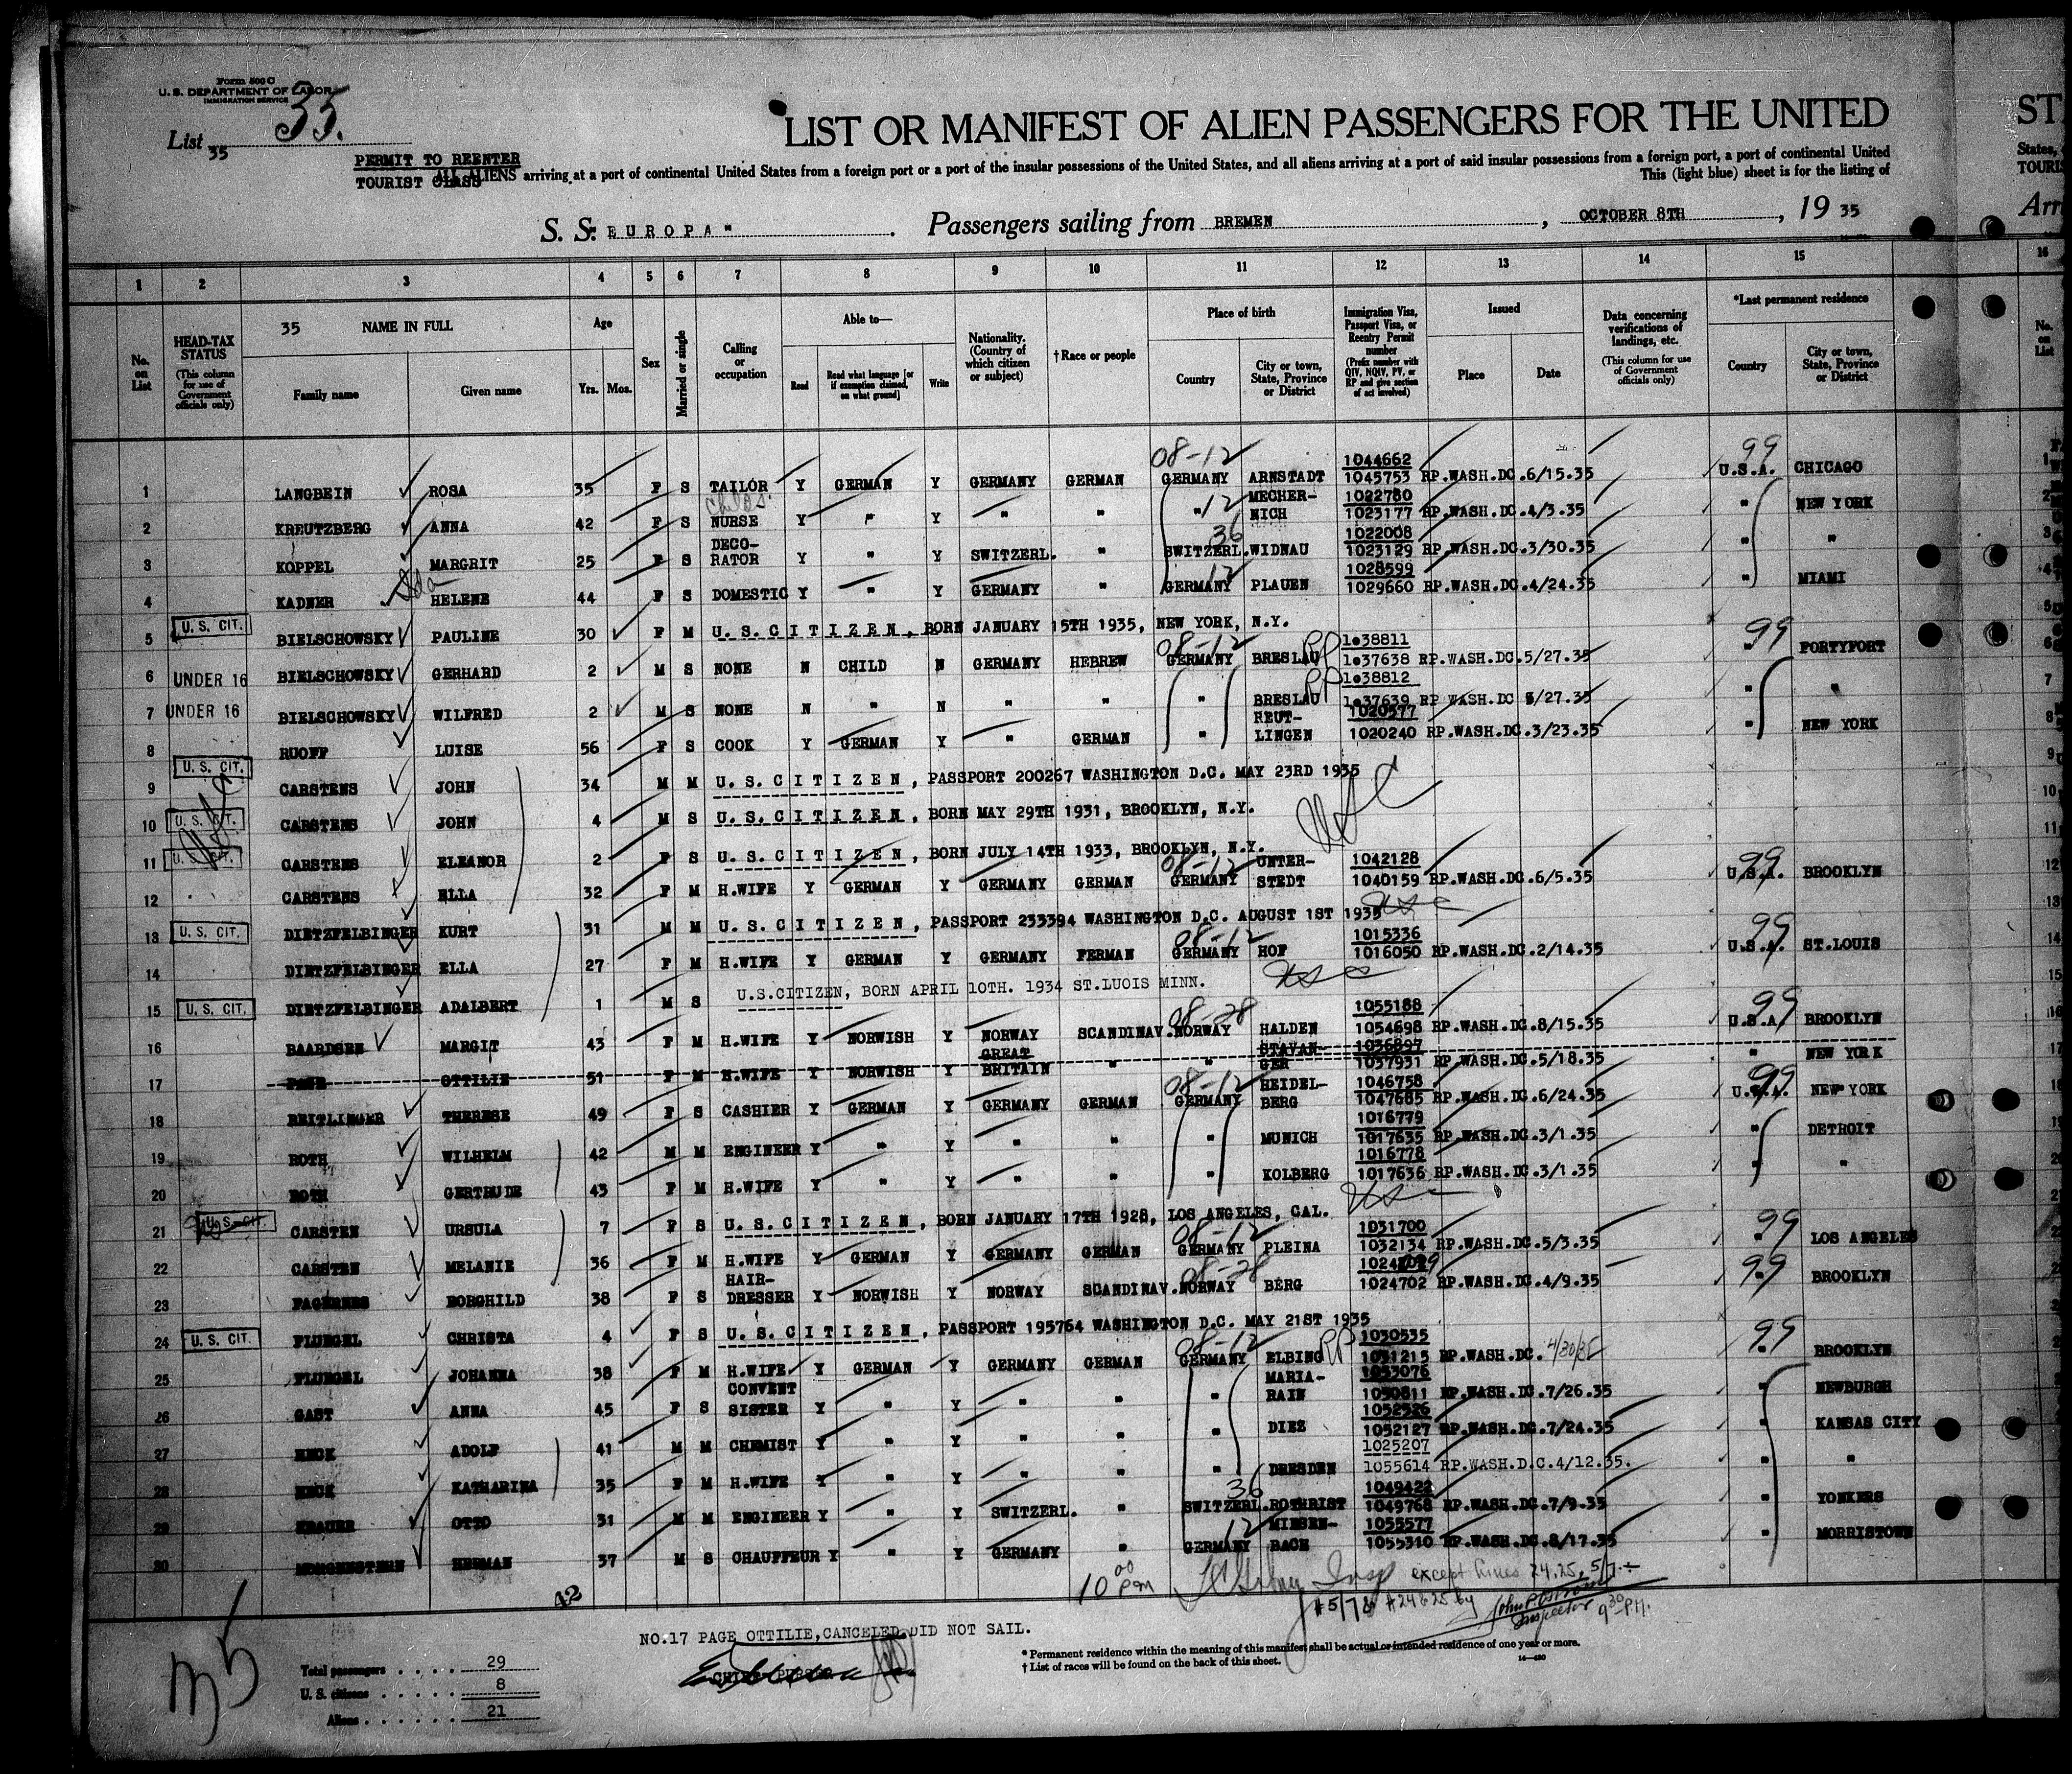 Form 500 C
U. S. DEPARTMENT OF LABOR
IMMIGRATION SERVICE
List 35 35.
LIST OR MANIFEST OF ALIEN PASSENGERS FOR THE UNITED ST
PERMIT TO REENTER
TOURIST CLASS
ALL ALIENS arriving at a port of continental United States from a foreign port or a port of the insular possessions of the United States, and all aliens arriving at a port of said insular possessions from a foreign port, a port of continental United States,
This (light blue) sheet is for the listing of TOURIS
S. S. "EUROPA". Passengers sailing from BREMEN, OCTOBER 8TH, 19 35 Arr
1 2 3 4 5 6 7 8 9 10 11 12 13 14 15 16
No. on List
HEAD-TAX STATUS (This column for use of Government officials only)
35 NAME IN FULL
Family name Given name
Age Yrs. Mos.
Sex
Married or single
Calling or occupation
Able to— Read Read what language [or if exemption claimed, on what ground] Write
Nationality. (Country of which citizen or subject)
† Race or people
Place of birth Country City or town, State, Province or District
Immigration Visa, Passport Visa, or Reentry Permit number (Prefix number with QIV, NQIV, PV, or RP and give section of act involved)
Issued Place Date
Data concerning verifications of landings, etc. (This column for use of Government officials only)
*Last permanent residence Country City or town, State, Province or District
No. on List
1 LANGBEIN ROSA 35 F S TAILOR Y GERMAN Y GERMANY GERMAN 08-12 GERMANY ARNSTADT 1044662 1045753 RP.WASH.DC.6/15.35 99 U.S.A. CHICAGO
2 KREUTZBERG ANNA 42 F S NURSE Y " Y " " " 12 MECHER-NICH 1022780 1023177 RP.WASH.DC.4/3.35 " NEW YORK
3 KOPPEL MARGRIT 25 F S DECO-RATOR Y " Y SWITZERL. " 36 SWITZERL. WIDNAU 1022008 1023129 RP.WASH.DC.3/30.35 " "
4 KADNER Ida HELENE 44 F S DOMESTIC Y " Y GERMANY " 12 GERMANY PLAUEN 1028599 1029660 RP.WASH.DC.4/24.35 " MIAMI
5 U. S. CIT. BIELSCHOWSKY PAULINE 30 F M U. S. C I T I Z E N, BORN JANUARY 15TH 1935, NEW YORK, N.Y.
6 UNDER 16 BIELSCHOWSKY GERHARD 2 M S NONE N CHILD N GERMANY HEBREW 08-12 GERMANY BRESLAU RP 1038811 1037638 RP.WASH.DC.5/27.35 99 " FORTYFORT
7 UNDER 16 BIELSCHOWSKY WILFRED 2 M S NONE N " N " " " BRESLAU RP 1038812 1037639 RP.WASH.DC 5/27.35 " "
8 RUOFF LUISE 56 F S COOK Y GERMAN Y " GERMAN " REUT-LINGEN 1020577 1020240 RP.WASH.DC.3/23.35 " NEW YORK
9 U. S. CIT. CARSTENS JOHN 34 M M U. S. C I T I Z E N, PASSPORT 200267 WASHINGTON D.C. MAY 23RD 1935
10 U. S. CIT. CARSTENS JOHN 4 M S U. S. C I T I Z E N, BORN MAY 29TH 1931, BROOKLYN, N.Y.
11 U. S. CIT. CARSTENS ELEANOR 2 F S U. S. C I T I Z E N, BORN JULY 14TH 1933, BROOKLYN, N.Y.
12 CARSTENS ELLA 32 F M H.WIFE Y GERMAN Y GERMANY GERMAN 08-12 GERMANY UNTER-STEDT 1042128 1040159 RP.WASH.DC.6/5.35 99 U.S.A. BROOKLYN
13 U. S. CIT. DIETZFELBINGER KURT 31 M M U. S. C I T I Z E N, PASSPORT 233394 WASHINGTON D.C. AUGUST 1ST 1935
14 DIETZFELBINGER ELLA 27 F M H.WIFE Y GERMAN Y GERMANY FERMAN 08-12 GERMANY HOF 1015336 1016050 RP.WASH.DC.2/14.35 99 U.S.A. ST.LOUIS
15 U. S. CIT. DIETZFELBINGER ADALBERT 1 M S U.S.CITIZEN, BORN APRIL 10TH. 1934 ST.LUOIS MINN.
16 BAARDSEN MARGIT 43 F M H.WIFE Y NORWISH Y NORWAY SCANDINAV. 08-28 NORWAY HALDEN 1055188 1054698 RP.WASH.DC.8/15.35 99 U.S.A. BROOKLYN
17 PAGE OTTILIE 51 F M H.WIFE Y NORWISH Y GREAT BRITAIN " " STAVAN-GER 1036897 1037931 RP.WASH.DC.5/18.35 " NEW YORK
18 REITLINGER THERESE 49 F S CASHIER Y GERMAN Y GERMANY GERMAN 08-12 GERMANY HEIDEL-BERG 1046758 1047685 RP.WASH.DC.6/24.35 99 U.S.A. NEW YORK
19 ROTH WILHELM 42 M M ENGINEER Y " Y " " " MUNICH 1016779 1017635 RP.WASH.DC.3/1.35 " DETROIT
20 ROTH GERTRUDE 43 F M H.WIFE Y " Y " " " KOLBERG 1016778 1017636 RP.WASH.DC.3/1.35 " "
21 U. S. CIT. CARSTEN URSULA 7 F S U. S. C I T I Z E N, BORN JANUARY 17TH 1928, LOS ANGELES, CAL.
22 CARSTEN MELANIE 36 F M H.WIFE Y GERMAN Y GERMANY GERMAN 08-12 GERMANY PLEINA 1031700 1032134 RP.WASH.DC.5/3.35 99 " LOS ANGELES
23 FAGERNES BORGHILD 38 F S HAIR-DRESSER Y NORWISH Y NORWAY SCANDINAV. 08-28 NORWAY BERG 1024702 RP.WASH.DC.4/9.35 99 " BROOKLYN
24 U. S. CIT. FLUEGEL CHRISTA 4 F S U. S. C I T I Z E N, PASSPORT 195764 WASHINGTON D.C. MAY 21ST 1935
25 FLUEGEL JOHANNA 38 F M H.WIFE Y GERMAN Y GERMANY GERMAN 08-12 GERMANY ELBING RP 1030535 1031215 RP.WASH.DC. 4/30/35 99 " BROOKLYN
26 GAST ANNA 45 F S CONVENT SISTER Y " Y " " " MARIA-RAIN 1053076 1050811 RP.WASH.DC.7/26.35 " NEWBURGH
27 HECK ADOLF 41 M M CHEMIST Y " Y " " " DIEZ 1052526 1052127 RP.WASH.DC.7/24.35 " KANSAS CITY
28 HECK KATHARINA 35 F M H.WIFE Y " Y " " " DRESDEN 1025207 1055614 RP.WASH.D.C.4/12.35. " "
29 OTTO 31 M M ENGINEER Y " Y SWITZERL. " 36 SWITZERL. ROTHRIST 1049422 1049768 RP.WASH.DC.7/9.35 " YONKERS
30 MORGENSTERN HERMAN 37 M S CHAUFFEUR Y " Y GERMANY " 12 GERMANY MIESEN-BACH 1055577 1055310 RP.WASH.DC.8/17.35 " MORRISTOWN
42 10 00 Pm Insp except lines 24, 25, 5/7
#5/7 & #24 & 25 by Inspector 9 30 P.M.
NO.17 PAGE OTTILIE,CANCELED DID NOT SAIL.
CHIEF PURSER
* Permanent residence within the meaning of this manifest shall be actual or intended residence of one year or more.
† List of races will be found on the back of this sheet.
35
Total passengers . . . . 29
U. S. citizens . . . . . 8
Aliens . . . . . . 21